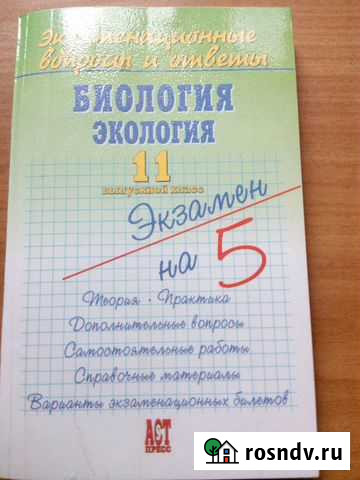 Экзаменационные
вопросы и ответы
БИОЛОГИЯ
ЭКОЛОГИЯ
11
выпускной класс
Экзамен
на 5
Теория • Практика
Дополнительные вопросы
Самостоятельные работы
Справочные материалы
Варианты экзаменационных билетов
АСТ
ПРЕСС
rosndv.ru